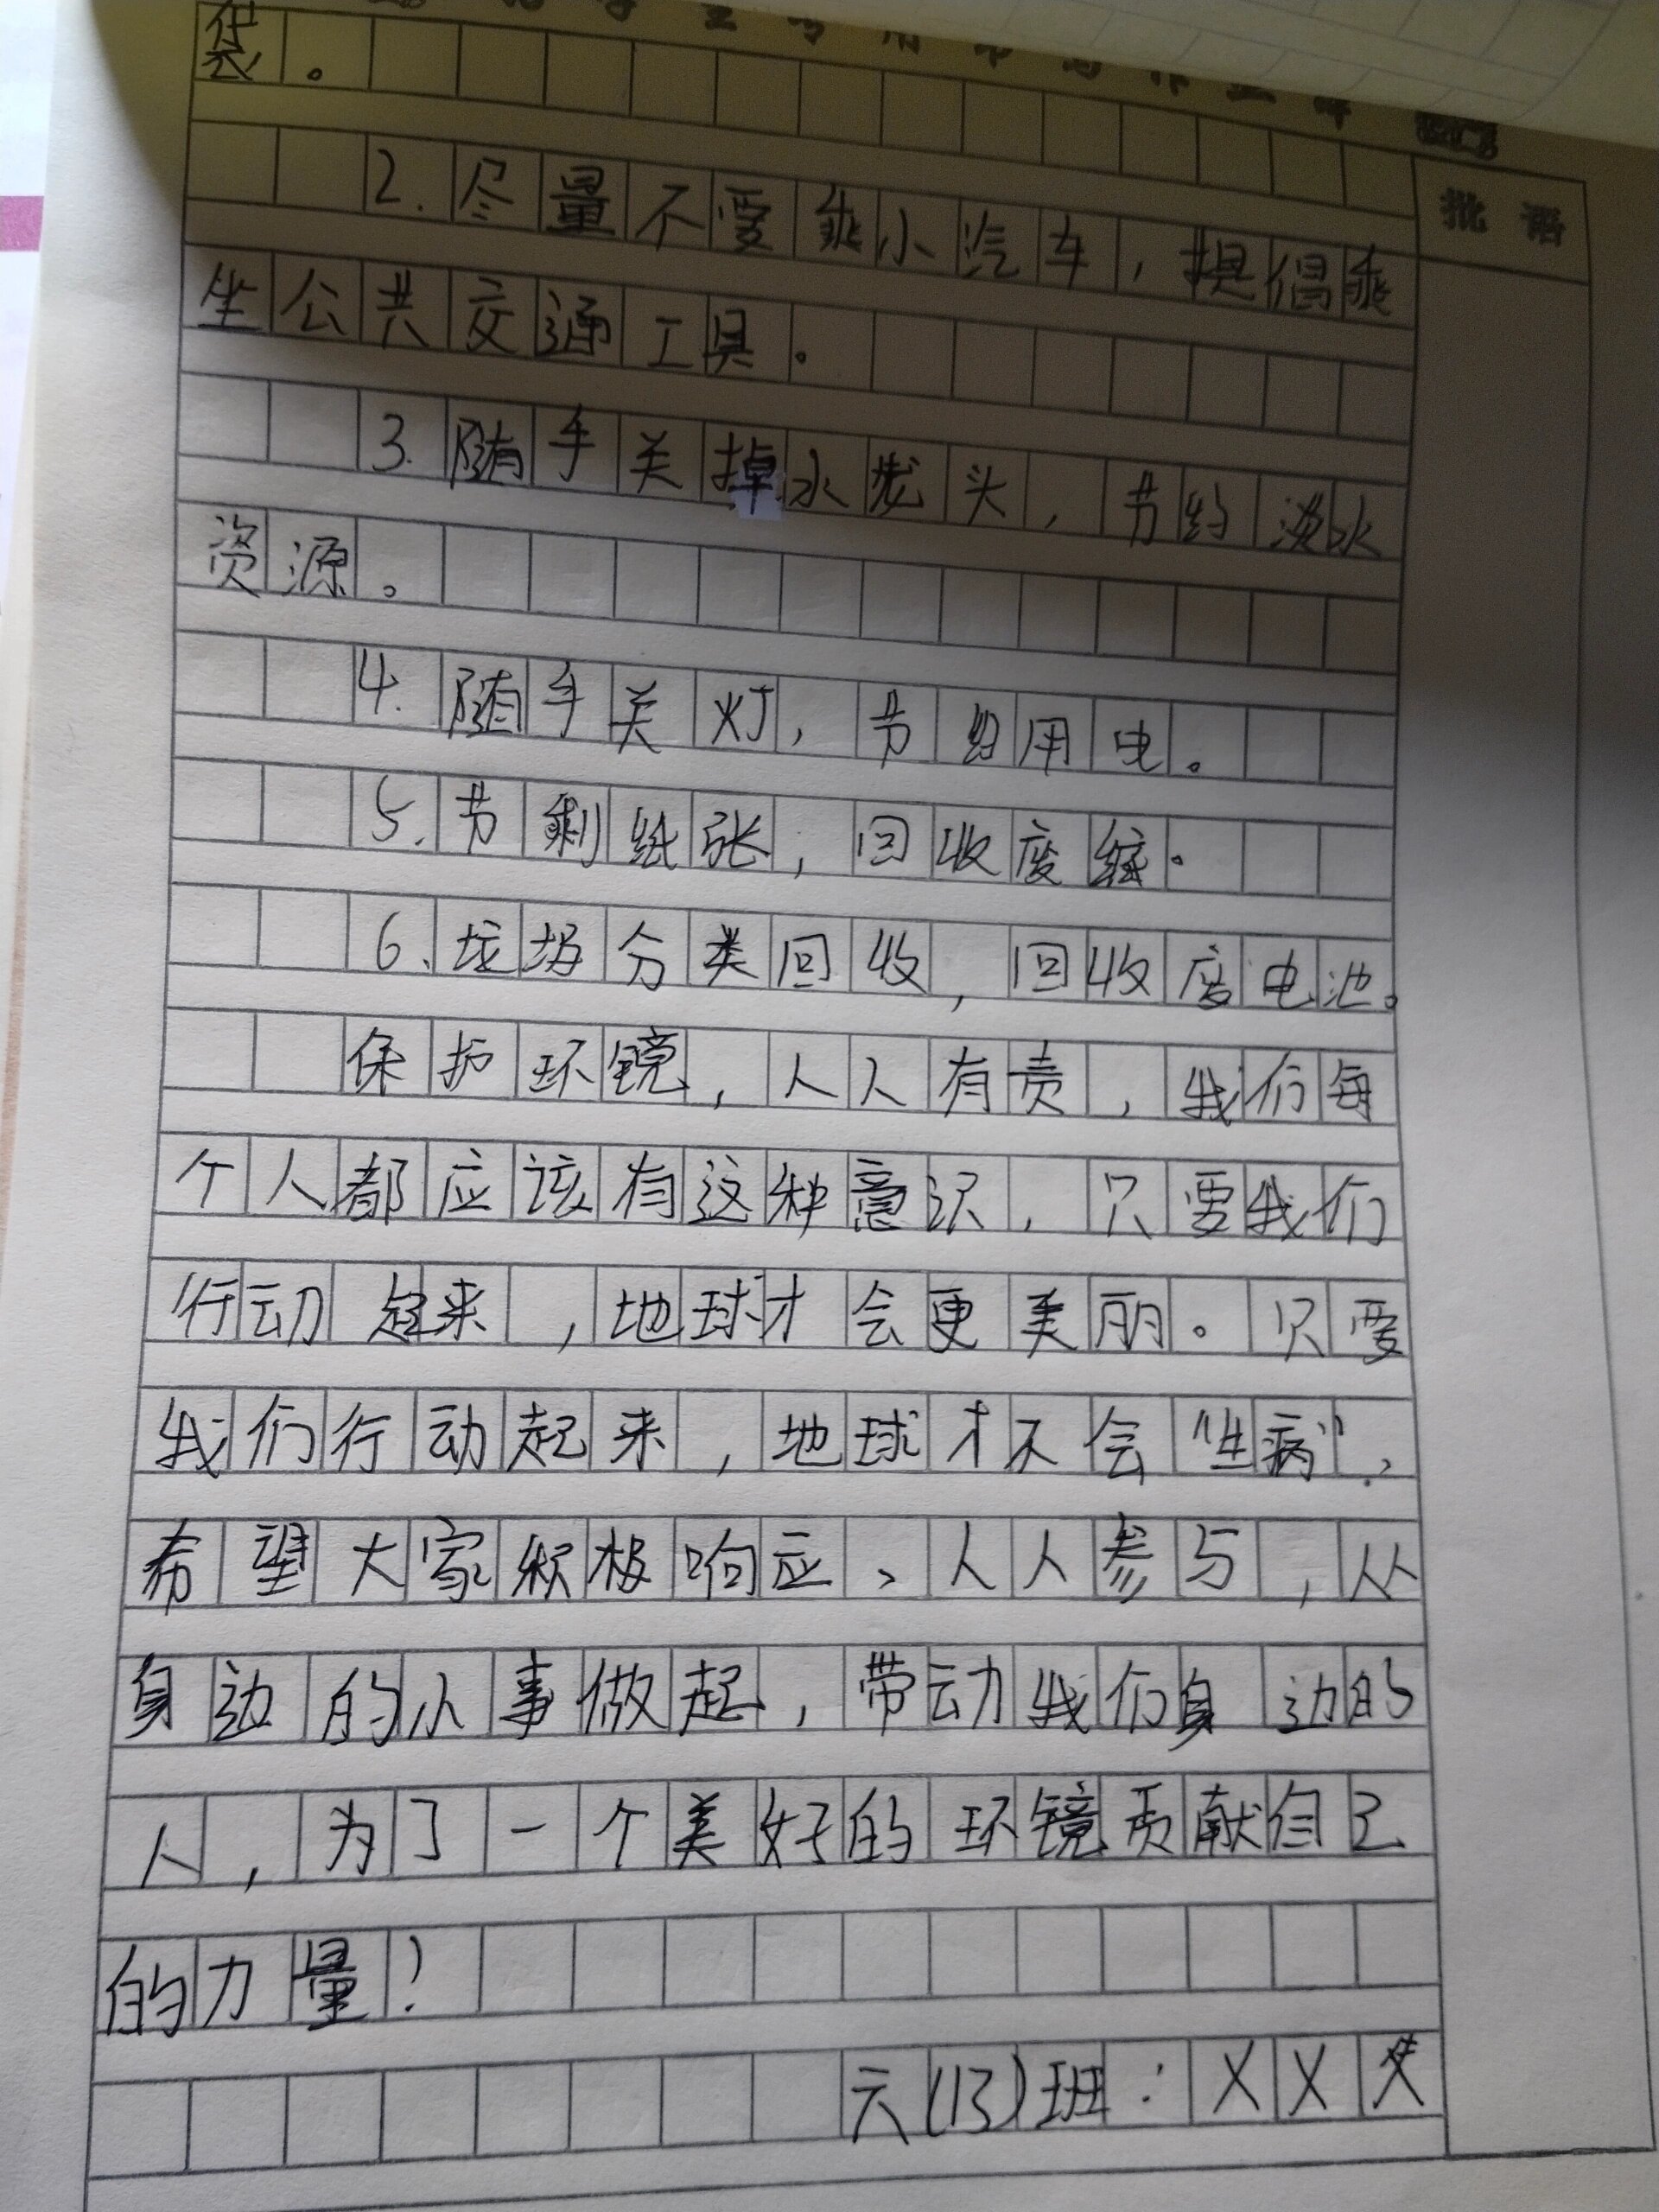 袋。
批语
2.尽量不要乘小汽车,提倡乘
坐公共交通工具。
3.随手关掉水龙头,节约淡水
资源。
4.随手关灯,节约用电。
5.节剩纸张,回收废纸。
6、垃圾分类回收,回收废电池。
保护环镜,人人有责,我们每
个人都应该有这种意识,只要我们
行动起来,地球才会更美丽。只要
我们行动起来,地球才不会"生病",
希望大家积极响应、人人参与,从
身边的小事做起,带动我们身边的
人,为了一个美好的环镜贡献自己
的力量!
六(13)班:XXX